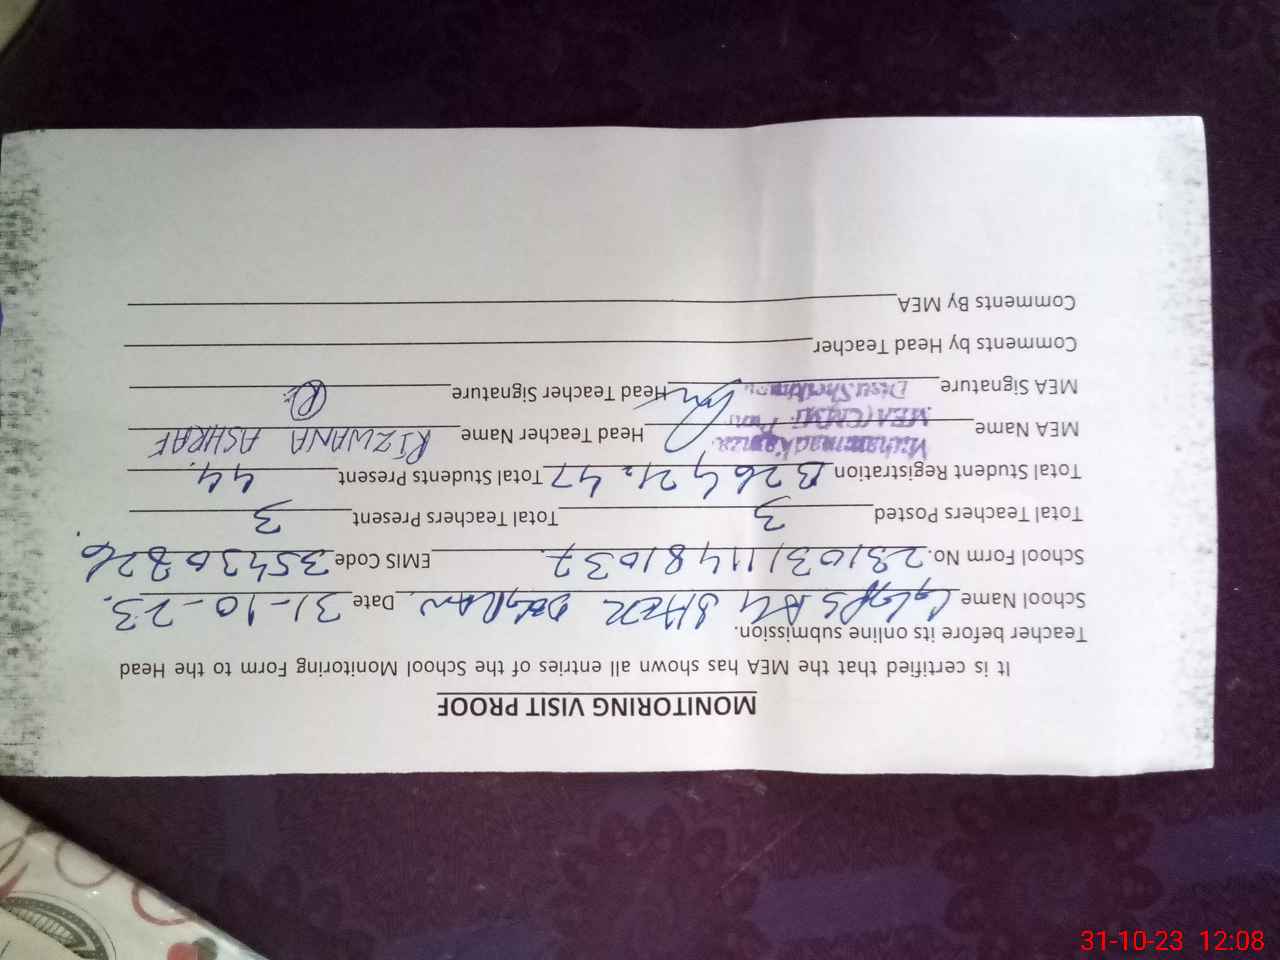 MONITORING VISIT PROOF
It is certified that the MEA has shown all entries of the School Monitoring Form to the Head
Teacher before its online submission.
School Name GGPS SHER Date 31-10-23.
School Form No. 23103111481037. EMIS Code 35430826
Total Teachers Posted 3 Total Teachers Present 3
Total Student Registration B26 G21=47 Total Students Present 44.
MEA Name Muhammad Head Teacher Name RIZWANA ASHRAF
MEA (CMM)
MEA Signature Head Teacher Signature
Distt: Sheikhupura
Comments by Head Teacher
Comments By MEA
31-10-23 12:08